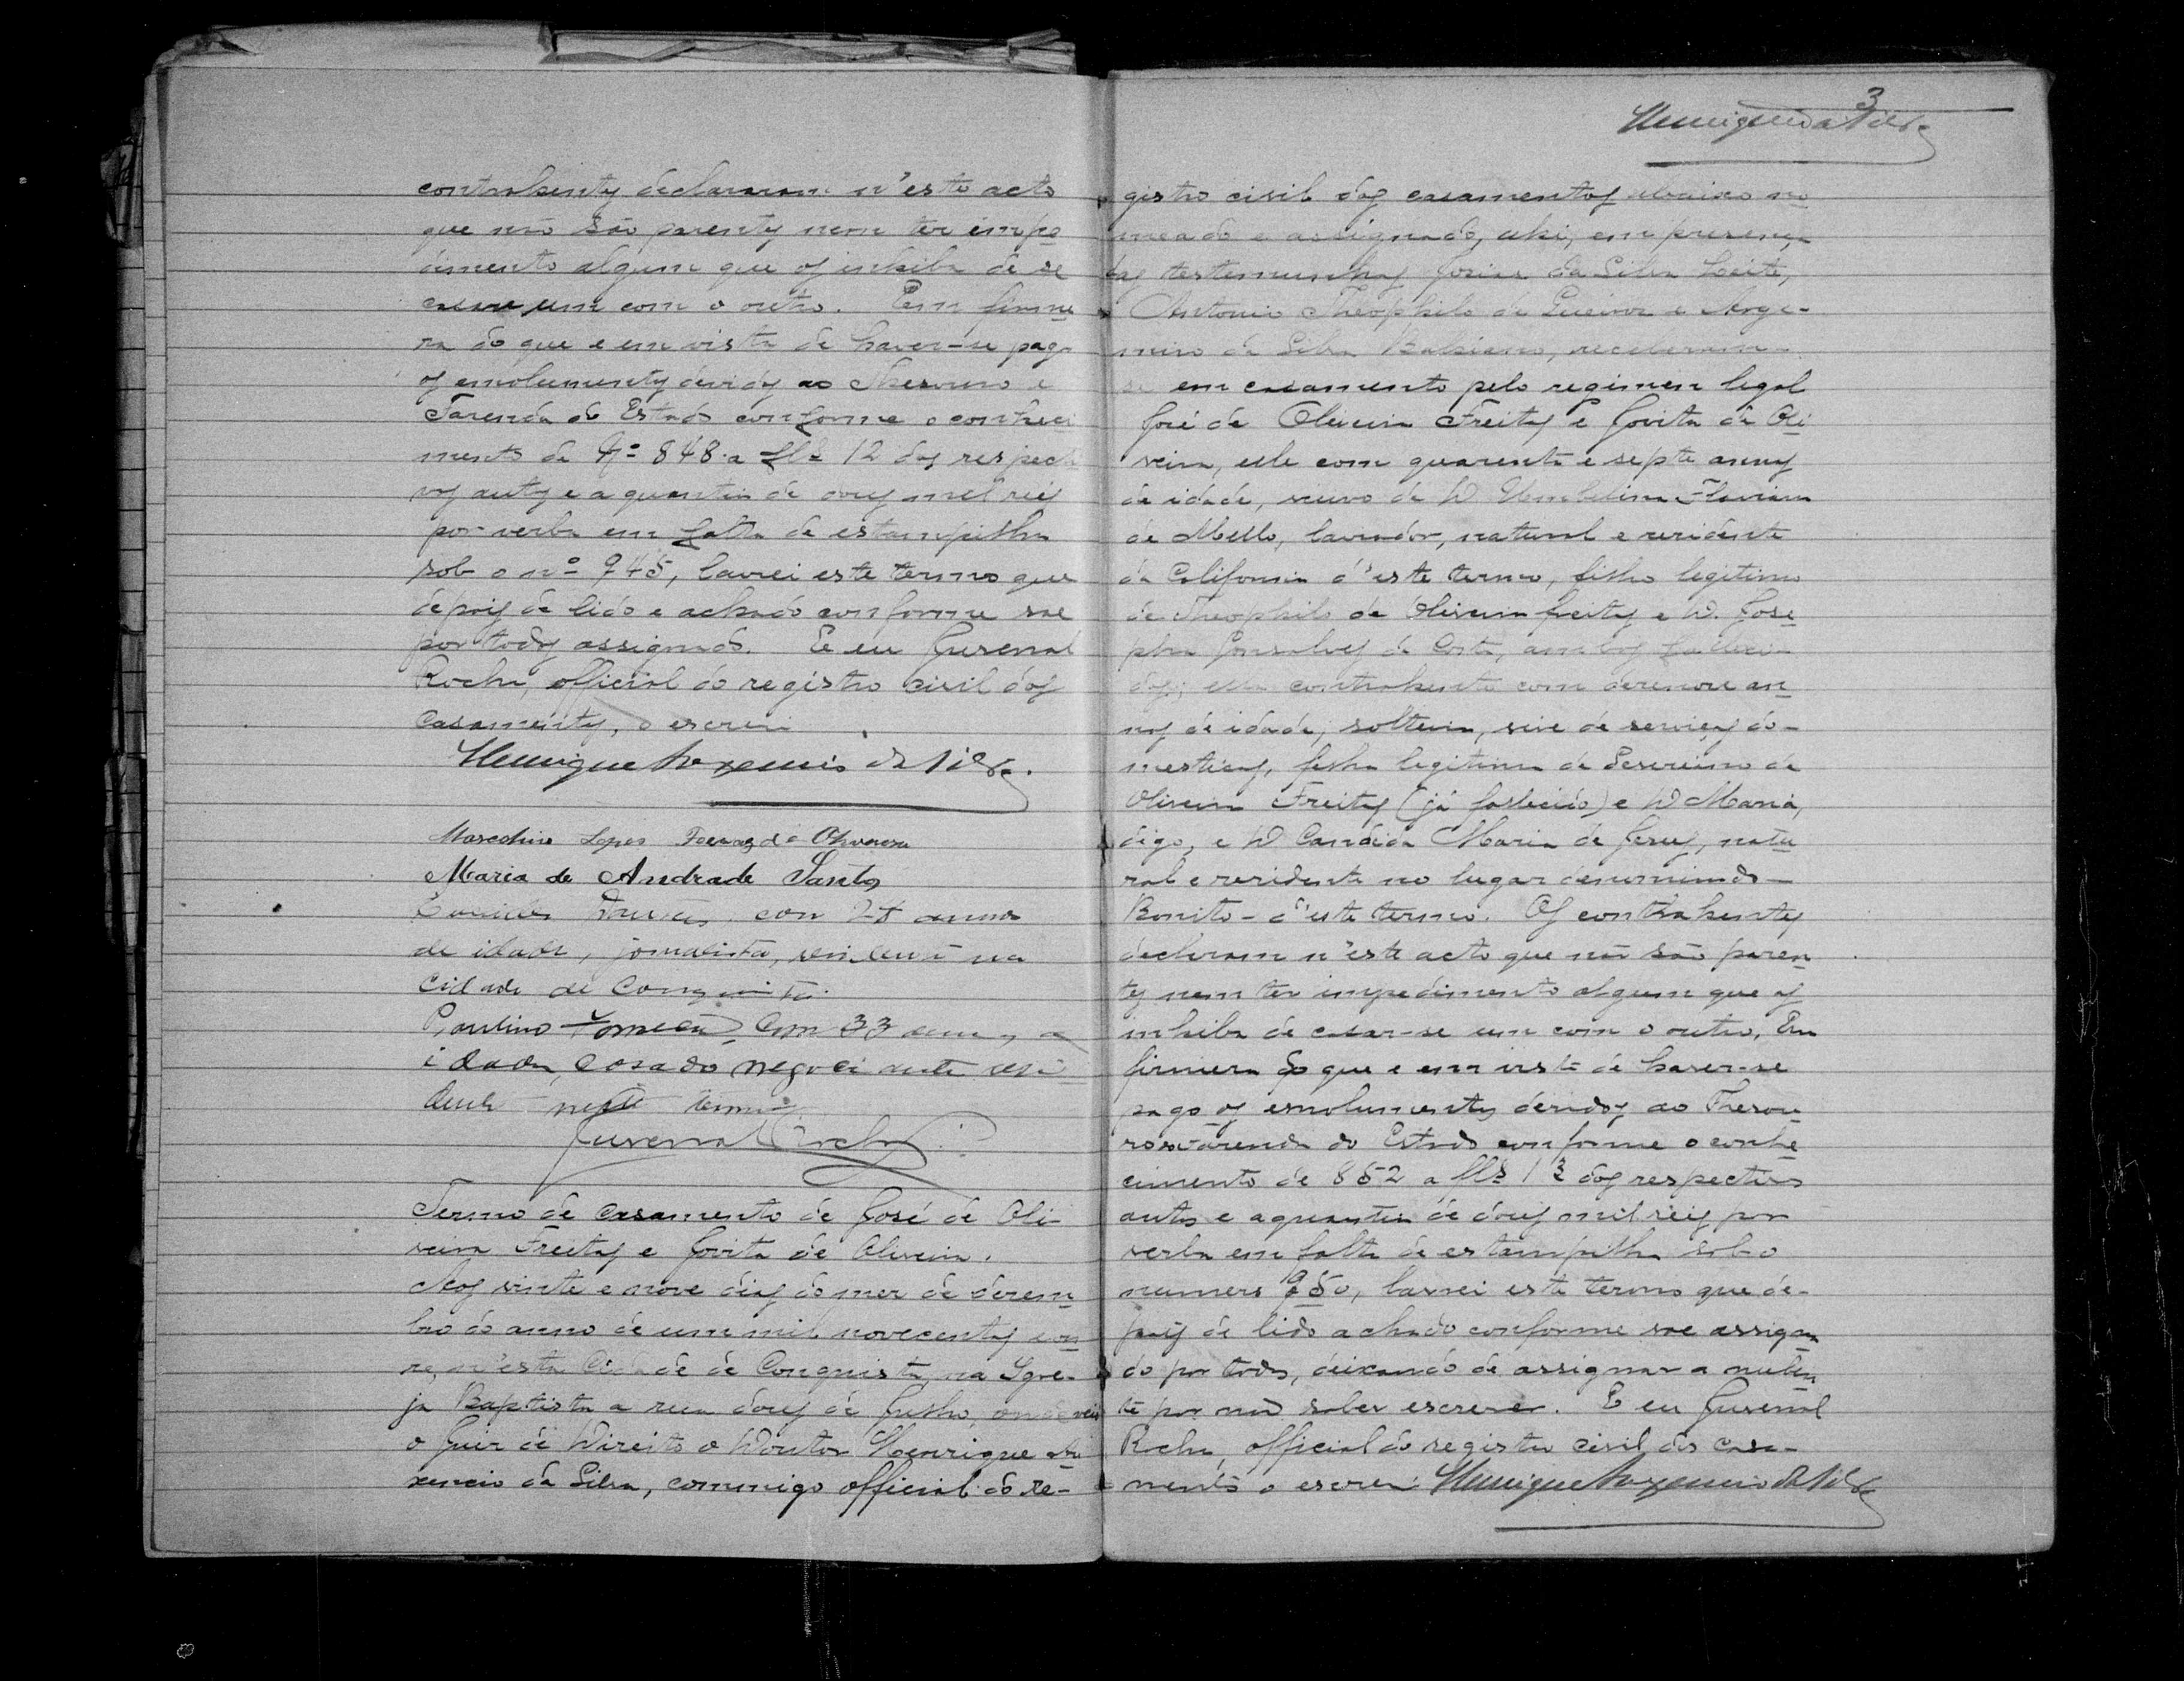 contrahentes declararam n'este acto
que não são parentes nem ter impe
dimento algum que os inhiba de se
casar um com o outro. Em firme
za do que e em vista de haver-se pago
os emolumentos devidos ao Thesouro e
Fazenda do Estado conforme o conheci
mento de Nº 848 a fls 12 dos respecti
vos autos e a quantia de dous mil reis
por verba em falta de estampilha
sob o nº 945, lavrei este termo que
depois de lido e achado conforme vae
por todos assignado. E eu Juvenal
Rocha, official do registro civil dos
casamentos, o escrevi
Henrique Auxencio da Silva.
Marcolino Lopes Ferraz de Oliveira
Maria de Andrade Santos
com 28 annos
de idade, jornalista, residente na
Cidade de Conquista.
Paulino Fonseca, com 33 annos de
idade, casado negociante resi
dente neste termo
Juvenal Rocha
Termo de casamento de José de Oli-
veira Freitas e Jovita de Oliveira.
Aos vinte e nove dias do mez de dezem
bro do anno de um mil novecentos e on
ze, n'esta Cidade de Conquista, na Igre-
ja Baptista a rua dous de Julho, onde veio
o Juiz de Direito o Doutor Henrique Au
xencio da Silva, commigo official do re-
3
Henrique da Silva
gistro civil dos casamentos abaixo no
meado e assignado, ahi, em presença
das testemunhas Josias da Silva Leite,
Antonio Theophilo de Queiroz e Arge-
miro da Silva Babiano, receberam-
se em casamento pelo regimen legal
José de Oliveira Freitas e Jovita de Oli
veira, elle com quarenta e septe annos
de idade, viuvo de D Umbelina Flaviana
de Mello, lavrador, natural e residente
da California d'este termo, filho legitimo
de Theophilo de Oliveira Freitas e D. Jose
pha Gonsalves da Costa, ambos falleci-
dos; ella contrahente com dezenove an
nos de idade, solteira, vive de serviços do-
mesticos, filha legitima de Severino de
Oliveira Freitas (já fallecido) e D Maria,
digo, e D Candida Maria de Jesus, natu
ral e residente no lugar denominado -
Bonito - d'este termo. Os contrahentes
declaram n'este acto que não são paren
tes nem ter impedimento algum que os
inhiba de casar-se um com o outro. Em
firmeza do que e em vista de haver-se
pago os emolumentos devidos ao Thesou
ro e Fazenda do Estado conforme o conhe
cimento de 852 a fls 13 dos respectivos
autos e a quantia de dous mil reis por
verba em falta de estampilha sob o
numero 950, lavrei este termo que de-
pois de lido achado conforme vae assigna
do por todos, deixando de assignar a nuben
te por não saber escrever. E eu Juvenal
Rocha, official do registro civil dos casa-
mentos o escrevi Henrique Auxencio da Silva